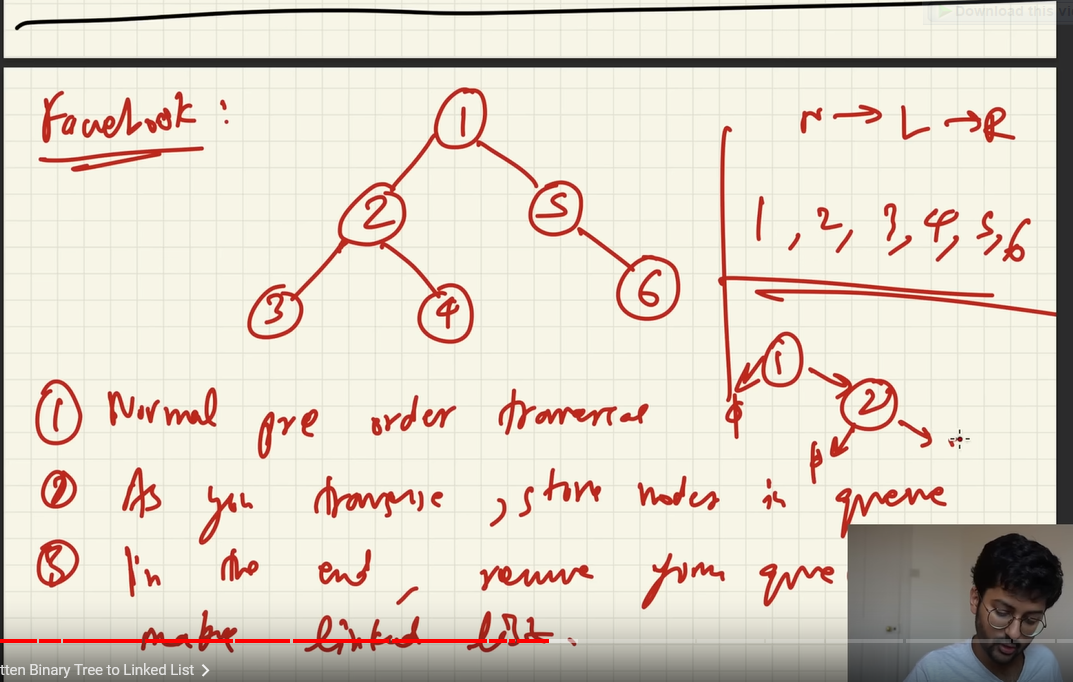 Download this vi
Facebook :
1
2
5
3
4
6
r → L → R
1, 2, 3, 4, 5, 6
1
ϕ
2
ϕ
① Normal pre order traversal
② As you traverse, store nodes in queue
③ In the end, remove from queue
make linked list.
tten Binary Tree to Linked List